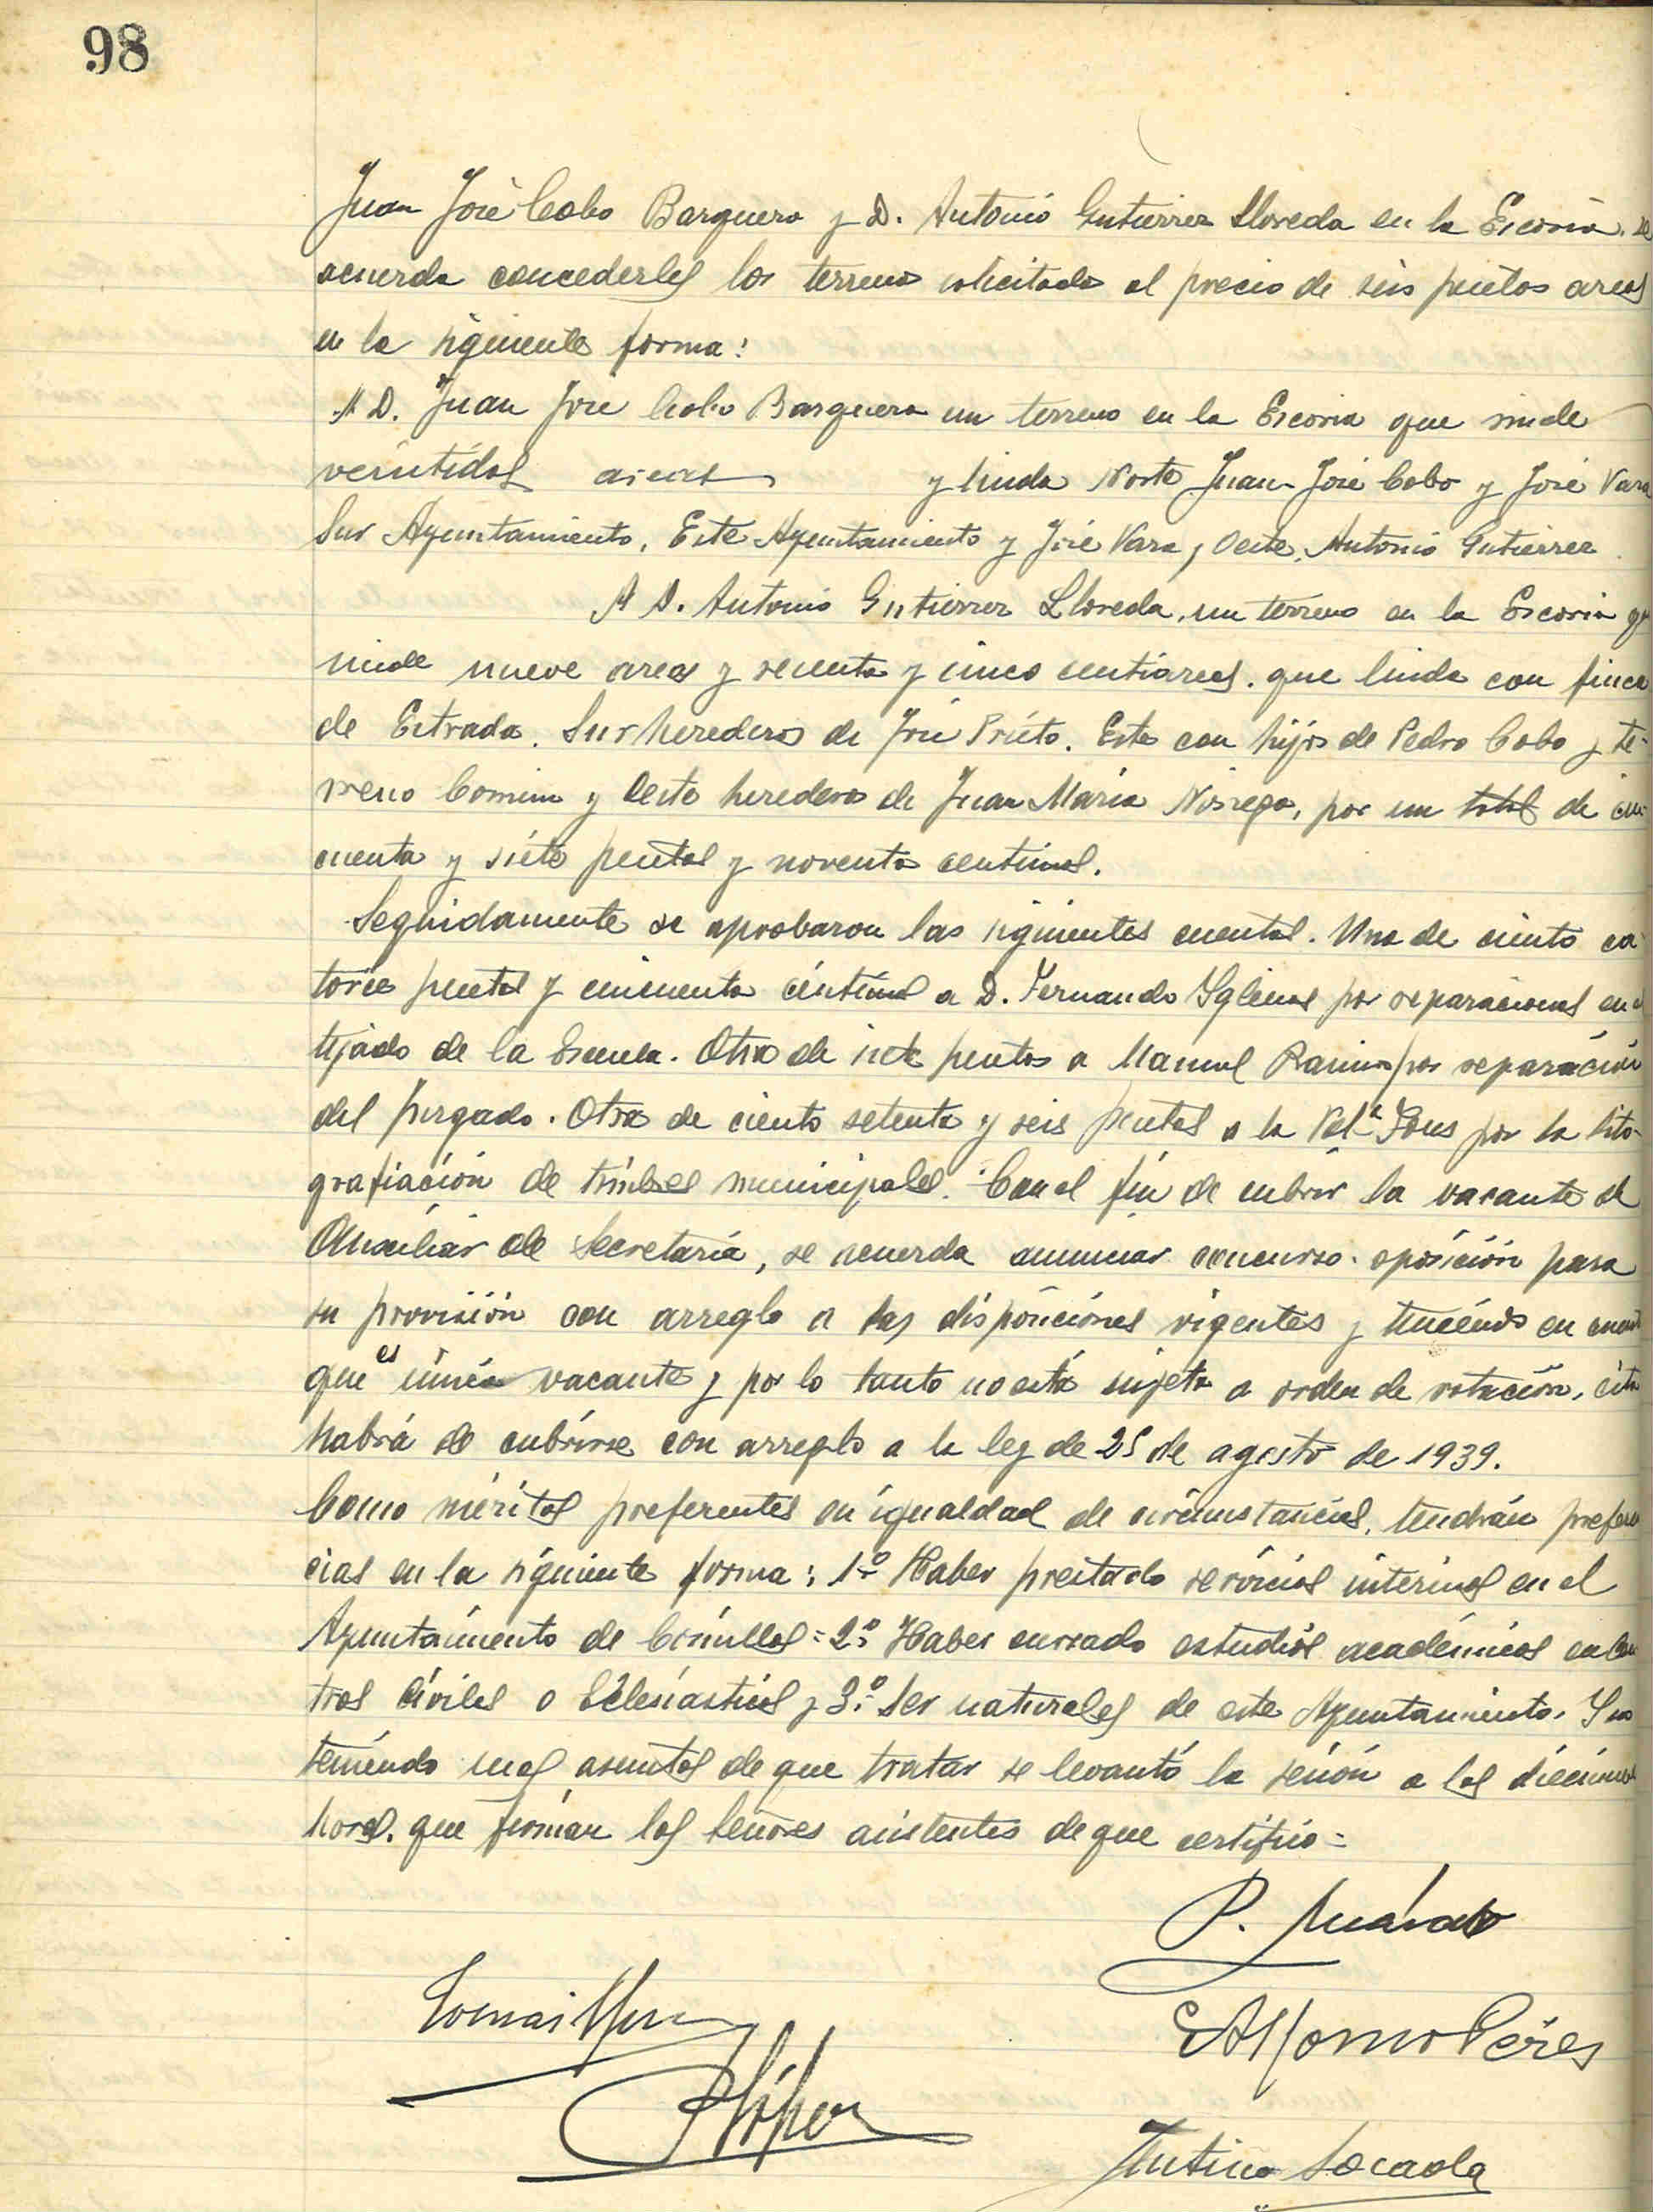 98
Juan José Cobo Barquero y D. Antonio Gutierrez Lloreda en la Escoria. se
acuerda concederles los terrenos solicitados al precio de seis pesetas areas
en la siguiente forma:
A D. Juan José Cobo Barquero un terreno en la Escoria que mide
veintidos areas y linda Norte Juan José Cobo y José Vara
Sur Ayuntamiento, Este Ayuntamiento y José Vara, Oeste, Antonio Gutierrez
A D. Antonio Gutierrez Lloreda, un terreno en la Escoria que
mide nueve areas y sesenta y cinco centiareas. que linda con finca
de Estrada. Sur herederos de José Prieto. Este con hijos de Pedro Cobo y te-
rreno Comun y Oeste herederos de Juan Maria Noriega, por un total de cin-
cuenta y siete pesetas y noventa centimos.
Seguidamente se aprobaron las siguientes cuentas. Una de ciento ca-
torce pesetas y cincuenta céntimos a D. Fernando Yglesias por reparaciones en el
tejado de la Escuela. Otra de siete pesetas a Manuel Ramos por reparación
del Juzgado. Otra de ciento setenta y seis pesetas a la Vda Fons por la lito-
grafiación de timbres municipales. Con el fin de cubrir la vacante de
Auxiliar de Secretaría, se acuerda anunciar concurso-oposición para
su provisión con arreglo a las disposiciones vigentes y teniendo en cuenta
que es única vacante y por lo tanto no está sujeta a orden de rotación, esta
habrá de cubrirse con arreglo a la ley de 25 de agosto de 1939.
Como méritos preferentes en igualdad de circunstancias, tendrán preferen
cias en la siguiente forma: 1º Haber prestado servicios interinos en el
Ayuntamiento de Comillas = 2º Haber cursado estudios académicos en Cen
tros Civiles o Eclesiásticos y 3º Ser naturales de este Ayuntamiento. Y no
teniendo mas asuntos de que tratar se levantó la sesión a las diecinueve
horas. que firman los señores asistentes de que certifico =
P.
Tomas
E Alfonso Pérez
P López